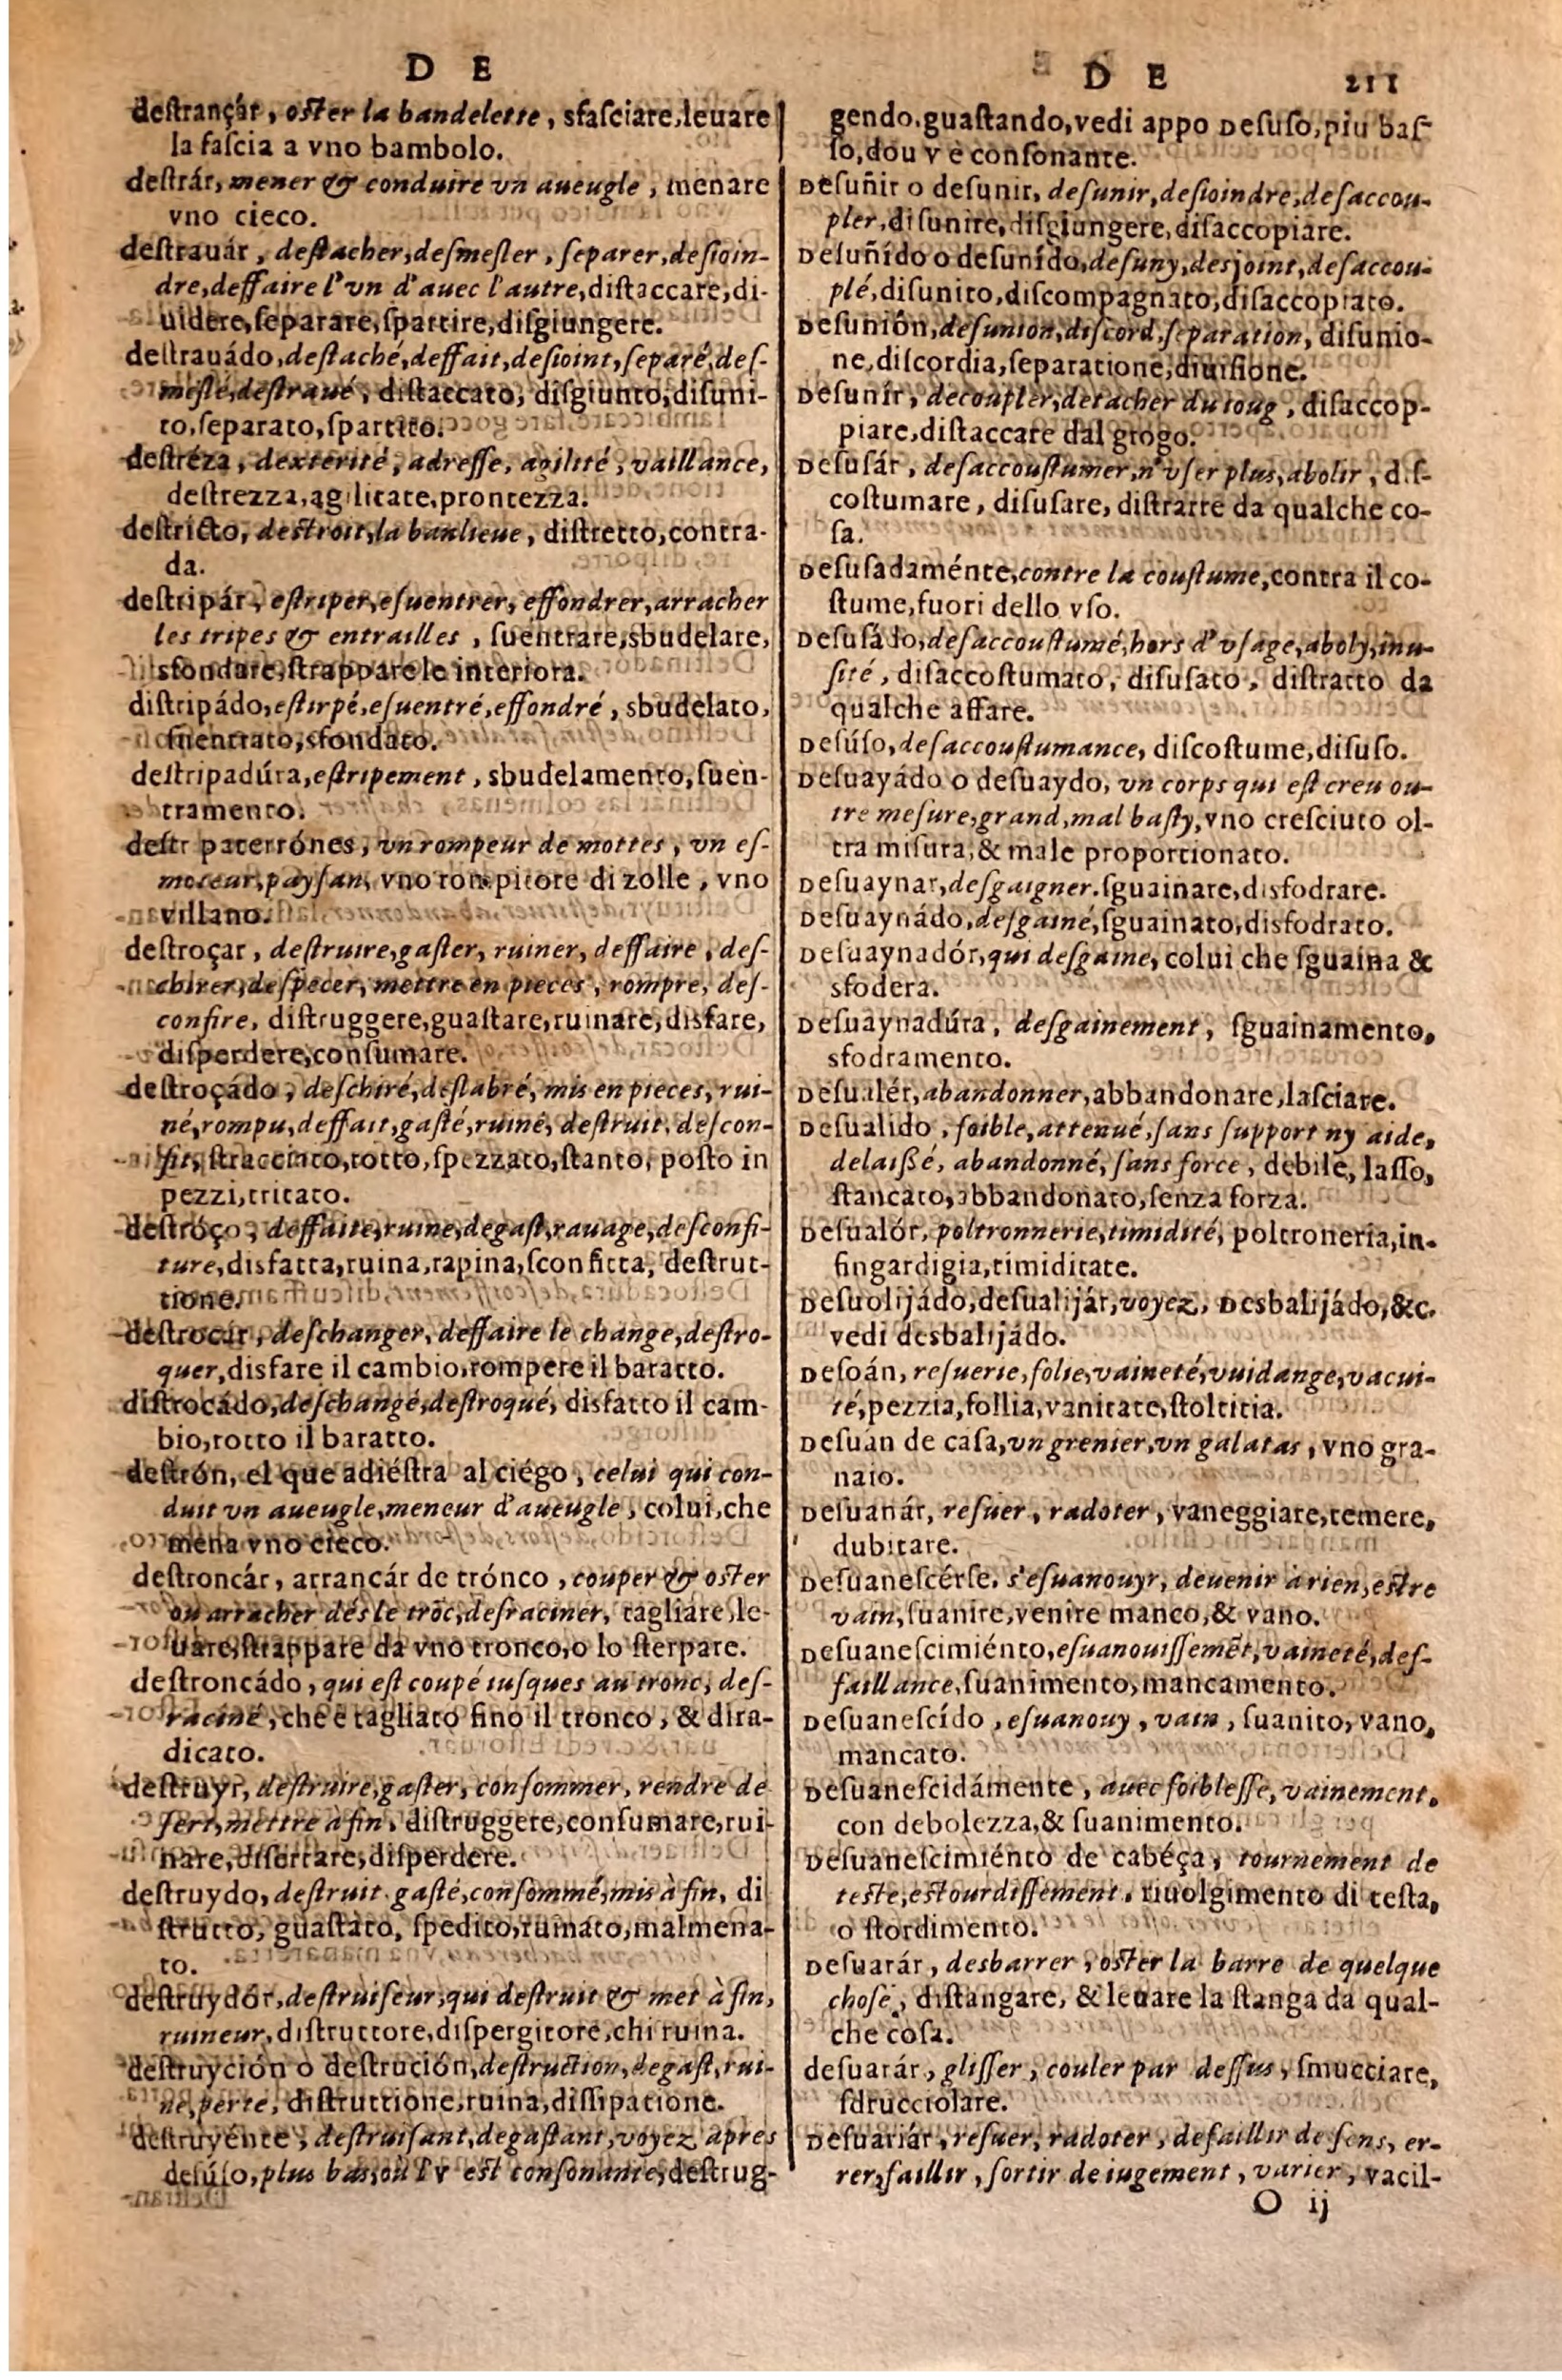 D E
destrançár, oster la bandelette, sfasciare, leuare
la fascia a vno bambolo.
destrár, mener & conduire vn aueugle, menare
vno cieco.
destrauár, destacher, desmesler, separer, desioin-
dre, deffaire l'vn d'auec l'autre, distaccare, di-
uidere, separare, spartire, disgiungere.
destrauádo, destaché, deffait, desioint, separé, des-
meslé, destraué, distaccato, disgiunto, disuni-
to, separato, spartito.
destréza, dexterité, adresse, agilité, vaillance,
destrezza, agilitate, prontezza.
destricto, destroit, la banlieue, distretto, contra-
da.
destripár, estriper, esuentrer, effondrer, arracher
les tripes & entrailles, suentrare, sbudelare,
sfondare, strappare le interiora.
distripádo, estirpé, esuentré, effondré, sbudelato,
suentrato, sfondato.
destripadúra, estripement, sbudelamento, suen-
tramento.
destr paterrónes, vn rompeur de mottes, vn es-
moteur, paysan, vno rompitore di zolle, vno
villano.
destroçar, destruire, gaster, ruiner, deffaire, des-
chirer, despecer, mettre en pieces, rompre, des-
confire, distruggere, guastare, ruinare, disfare,
disperdere, consumare.
destroçádo, deschiré, deslabré, mis en pieces, rui-
né, rompu, deffait, gasté, ruiné, destruit, descon-
fit, stracciato, rotto, spezzato, stanto, posto in
pezzi, tritato.
destróço, deffaite, ruine, degast, rauage, desconfi-
ture, disfatta, ruina, rapina, sconfitta, destrut-
tione.
destrocár, deschanger, deffaire le change, destro-
quer, disfare il cambio, rompere il baratto.
distrocádo, deschangé, destroqué, disfatto il cam-
bio, rotto il baratto.
destrón, el que adiéstra al ciégo, celui qui con-
duit vn aueugle, meneur d'aueugle, colui, che
mena vno cieco.
destroncár, arrancár de trónco, couper & oster
ou arracher dés le trõc, desraciner, tagliare, le-
uare, strappare da vno tronco, o lo sterpare.
destroncádo, qui est coupé iusques au tronc, des-
raciné, che è tagliato fino il tronco, & dira-
dicato.
destruyr, destruire, gaster, consommer, rendre de
sert, mettre à fin, distruggere, consumare, rui-
nare, disertare, disperdere.
destruydo, destruit, gasté, consommé, mis à fin, di
strutto, guastato, spedito, ruinato, malmena-
to.
destruydór, destruiseur, qui destruit & met à fin,
ruineur, distruttore, dispergitore, chi ruina.
destruyción o destrución, destruction, degast, rui-
ne, perte, distruttione, ruina, dissipatione.
destruyénte, destruisant, degastant, voyez apres
desúso, plus bas, où l'v est consonante, destrug-
D E 211
gendo, guastando, vedi appo Desuso, piu bas-
so, dou v è consonante.
Desuñir o desunir, desunir, desioindre, desaccou-
pler, disunire, disgiungere, disaccopiare.
Desuñído o desunído, desuny, desjoint, desaccou-
plé, disunito, discompagnato, disaccopiato.
Desunión, desunion, discord, separation, disunio-
ne, discordia, separatione, diuisione.
Desunír, decoupler, detacher du ioug, disaccop-
piare, distaccare dal giogo.
Desusár, desaccoustumer, n'vser plus, abolir, dis-
costumare, disusare, distrarre da qualche co-
sa.
Desusadaménte, contre la coustume, contra il co-
stume, fuori dello vso.
Desusádo, desaccoustumé, hors d'vsage, aboly, inu-
sité, disaccostumato, disusato, distratto da
qualche affare.
Desúso, desaccoustumance, discostume, disuso.
Desuayádo o desuaydo, vn corps qui est creu ou-
tre mesure, grand, mal basty, vno cresciuto ol-
tra misura, & male proportionato.
Desuaynar, desgaigner, sguainare, disfodrare.
Desuaynádo, desgainé, sguainato, disfodrato.
Desuaynadór, qui desgaine, colui che sguaina &
sfodera.
Desuaynadúra, desgainement, sguainamento,
sfodramento.
Desualér, abandonner, abbandonare, lasciare.
Desualido, foible, attenué, sans support ny aide,
delaißé, abandonné, sans force, debile, lasso,
stancato, abbandonato, senza forza.
Desualór, poltronnerie, timidité, poltroneria, in-
fingardigia, timiditate.
Desuolijádo, desualijár, voyez, Desbalijádo, &c.
vedi desbalijádo.
Desoán, resuerie, folie, vaineté, vuidange, vacui-
té, pezzia, follia, vanitate, stoltitia.
Desuán de casa, vn grenier, vn galatas, vno gra-
naio.
Desuanár, resuer, radoter, vaneggiare, temere,
dubitare.
Desuanescérse, s'esuanouyr, deuenir à rien, estre
vain, suanire, venire manco, & vano.
Desuanescimiénto, esuanouissemẽt, vaineté, des-
faillance, suanimento, mancamento.
Desuanescído, esuanouy, vain, suanito, vano,
mancato.
Desuanescidámente, auec foiblesse, vainement,
con debolezza, & suanimento.
Desuanescimiénto de cabéça, tournement de
teste, estourdissement, riuolgimento di testa,
o stordimento.
Desuarár, desbarrer, oster la barre de quelque
chose, distangare, & leuare la stanga da qual-
che cosa.
desuarár, glisser, couler par dessus, smucciare,
sdrucciolare.
Desuariár, resuer, radoter, defaillir de sens, er-
rer, faillir, sortir de iugement, varier, vacil-
O ij